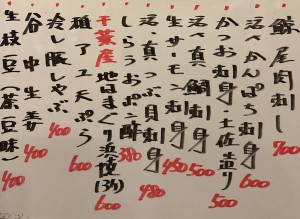 鯨尾肉刺し 700
活〆かんぱち刺身 600
かつお刺身土佐造り 500
活〆真鯛刺身 500
生サーモン刺身 450
活真つぶ貝刺身 480
しらうおポン酢 380
千葉産地はまぐり浜焼(3ケ) 600
稚アユ天ぷら 600
冷し豚しゃぶ 400
谷中生姜 400
生枝豆(茶豆味) 400